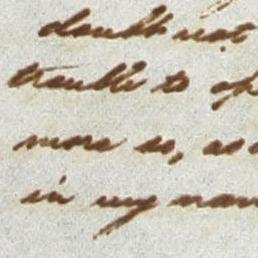 doubt not
trouble to op
more so, as
in my nam